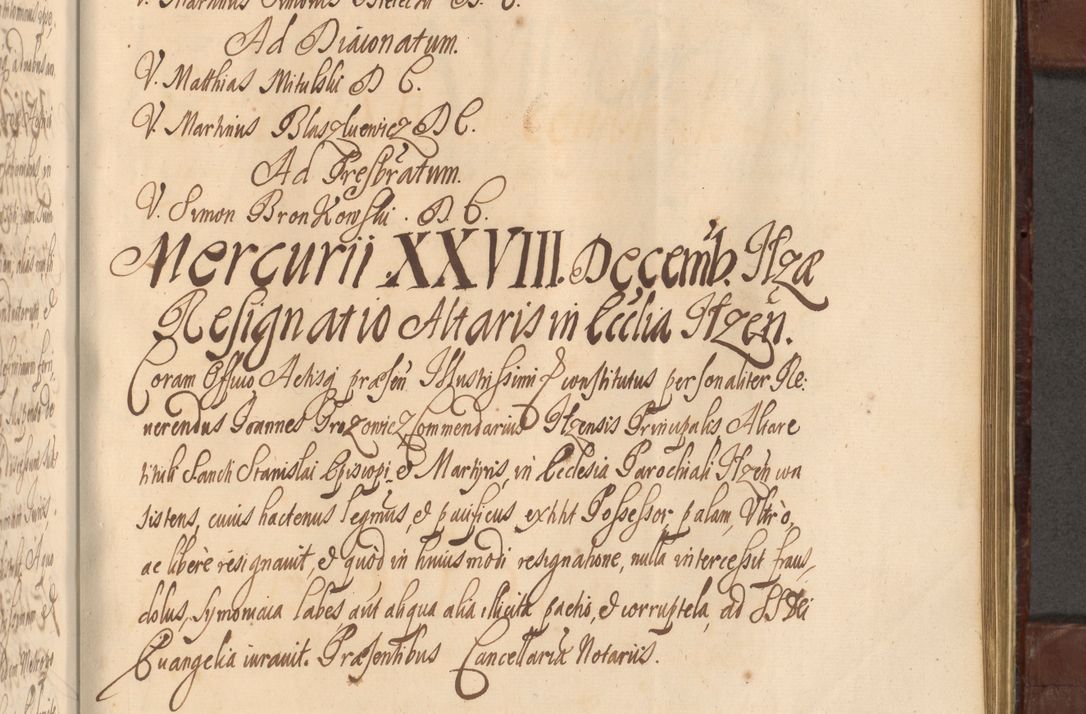 V. Marianus Simonis D. C.
Ad Diaconatum.
V. Matthias Mitulski D C.
V. Martinus Blaszluewicz D C.
Ad Presbratum.
V. Simon BronKowski. D. C.
Mercurii XXVIII. Decemb. Ilzæ
Resignatio Altaris in Ecclia Ilzeñ.
Coram Officio Actisq præsen Illustrissimi & constitutus personaliter Re:
uerendus Ioannes Commendarius Ilzensis Principalis Altare
tituli Sancti Stanislai Episcopi & Martyris, in Ecclesia Parochiali Ilzeñ con
sistens, cuius hactenus legmus, & pacificus extitit Possessor, palam, Vltrò,
ac liberè résignauit, & quòd in huiusmodi resignatione, nulla intercessit fraus,
dolus, Symoniaca labes aut aliqua alia illicita pactio, & corruptela, ad SS Dei
Euangelia iurauit. Præsentibus Cancellariæ Notariis.